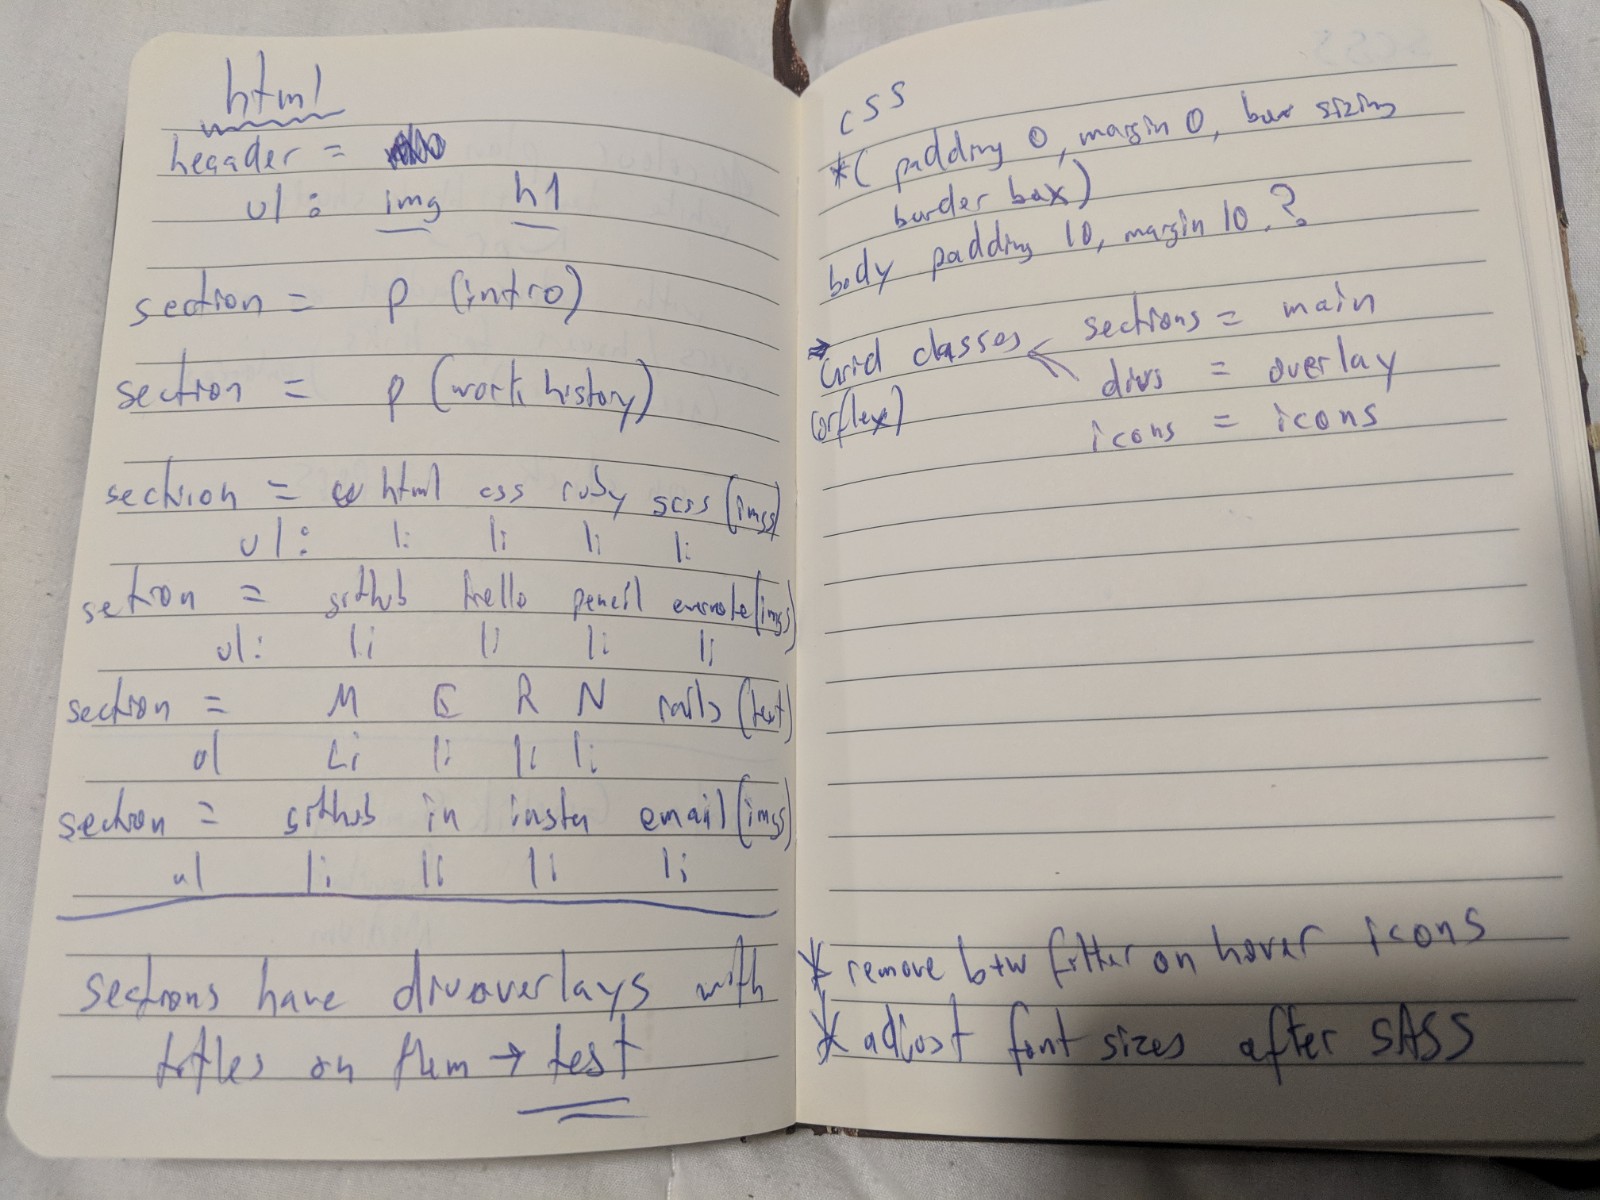 html
heqader =
ul: img h1
section = p (intro)
section = p (work history)
section = html css ruby scss (imgs)
ul: li li li li
setion = github trello pencil evernote (imgs)
ul: li li li li
section = M E R N rails (text)
ul Li li li li
section = github in insta email (imgs)
ul li li li li
sections have div overlays with
titles on them → test
css
*( padding 0, margin 0, box sizing
border box)
body padding 10, margin 10.?
Grid classes sections = main
(or flex) divs = overlay
icons = icons
* remove b+w filter on hover icons
* adjust font sizes after SASS